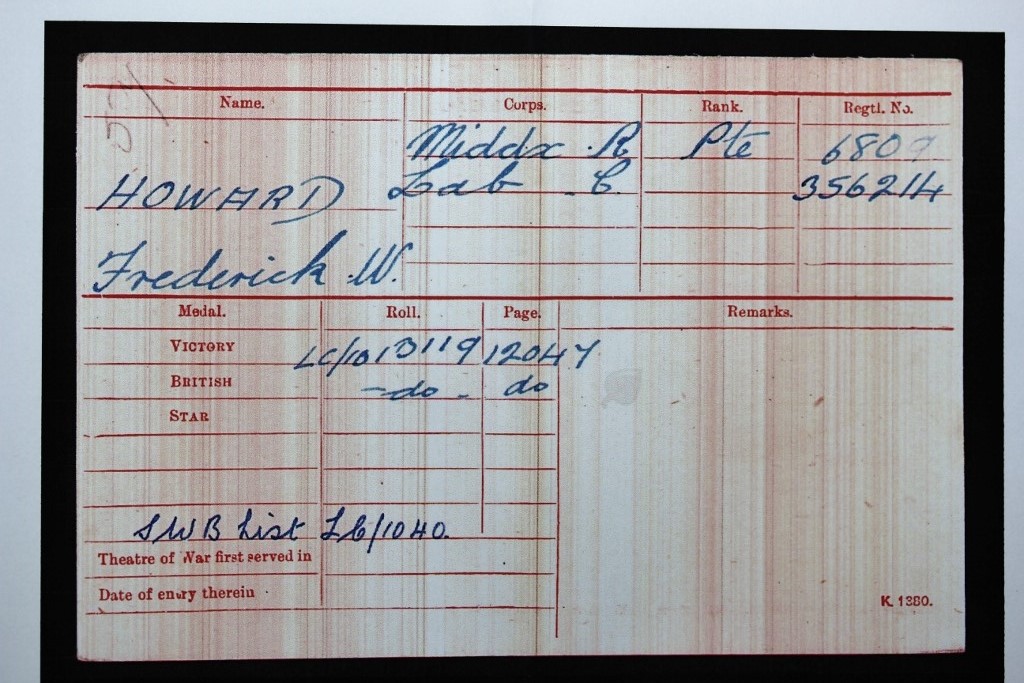 Name. Corps. Rank. Regtl. No.
Middx. R Pte 6807
HOWARD Lab. C. 356214
Frederick W.
Medal. Roll. Page. Remarks.
VICTORY LC/101B119 12047
BRITISH -do- do
STAR
SWB List LC/1040.
Theatre of War first served in
Date of entry therein
K. 1380.